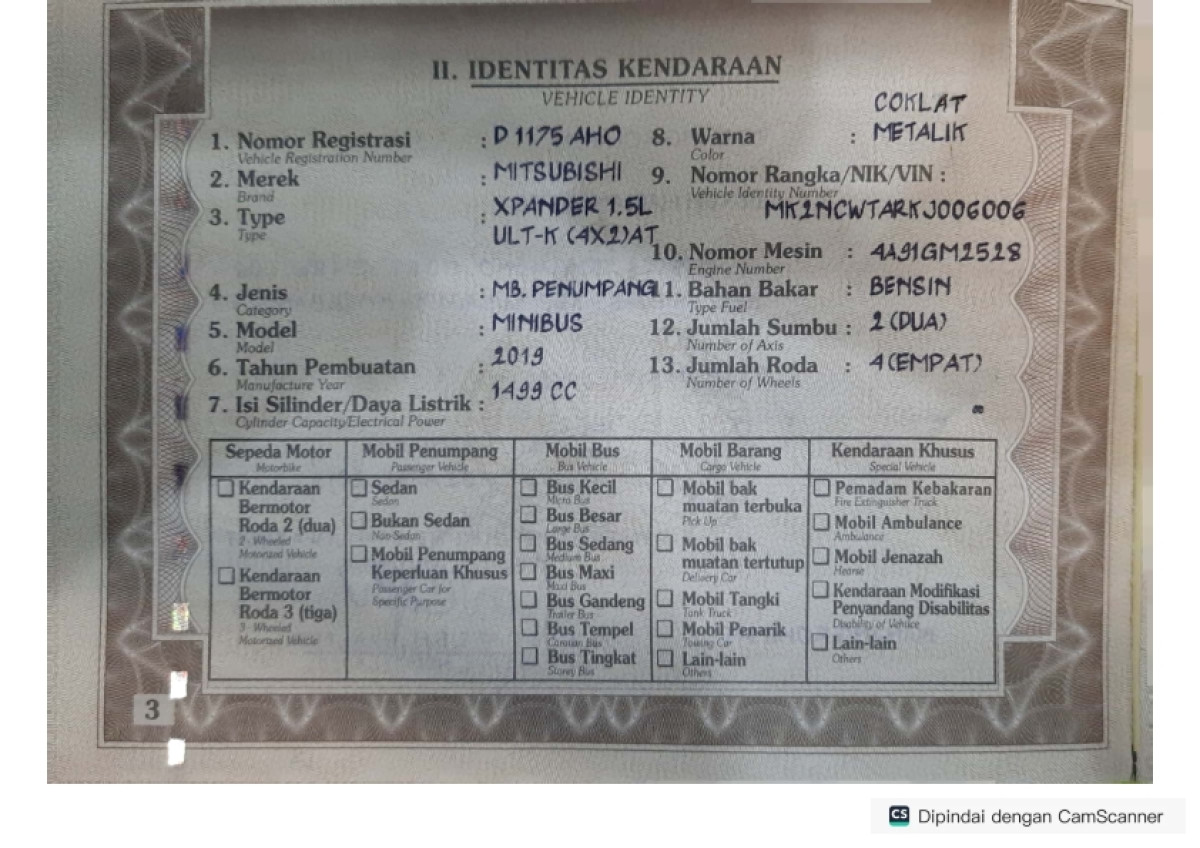 II. IDENTITAS KENDARAAN
VEHICLE IDENTITY
1. Nomor Registrasi : D 1175 AHO
Vehicle Registration Number
2. Merek : MITSUBISHI
Brand
3. Type : XPANDER 1.5L
Type
ULT-K (4X2)AT
4. Jenis : MB. PENUMPANG
Category
5. Model : MINIBUS
Model
6. Tahun Pembuatan : 2019
Manufacture Year
7. Isi Silinder/Daya Listrik : 1499 CC
Cylinder Capacity/Electrical Power
COKLAT
8. Warna : METALIK
Color
9. Nomor Rangka/NIK/VIN :
Vehicle Identity Number
MK2NCWTARKJ006006
10. Nomor Mesin : 4A91GM2528
Engine Number
11. Bahan Bakar : BENSIN
Type Fuel
12. Jumlah Sumbu : 2 (DUA)
Number of Axis
13. Jumlah Roda : 4 (EMPAT)
Number of Wheels
Sepeda Motor
Motorbike
Kendaraan
Bermotor
Roda 2 (dua)
2 - Wheeled
Motorized Vehicle
Kendaraan
Bermotor
Roda 3 (tiga)
3 - Wheeled
Motorized Vehicle
Mobil Penumpang
Passenger Vehicle
Sedan
Sedan
Bukan Sedan
Non-Sedan
Mobil Penumpang
Keperluan Khusus
Passenger Car for
Specific Purpose
Mobil Bus
Bus Vehicle
Bus Kecil
Micro Bus
Bus Besar
Large Bus
Bus Sedang
Medium Bus
Bus Maxi
Maxi Bus
Bus Gandeng
Trailer Bus
Bus Tempel
Caravan Bus
Bus Tingkat
Storey Bus
Mobil Barang
Cargo Vehicle
Mobil bak
muatan terbuka
Pick Up
Mobil bak
muatan tertutup
Delivery Car
Mobil Tangki
Tank Truck
Mobil Penarik
Towing Car
Lain-lain
Others
Kendaraan Khusus
Special Vehicle
Pemadam Kebakaran
Fire Extinguisher Truck
Mobil Ambulance
Ambulance
Mobil Jenazah
Hearse
Kendaraan Modifikasi
Penyandang Disabilitas
Disability of Vehicle
Lain-lain
Others
3
CS Dipindai dengan CamScanner